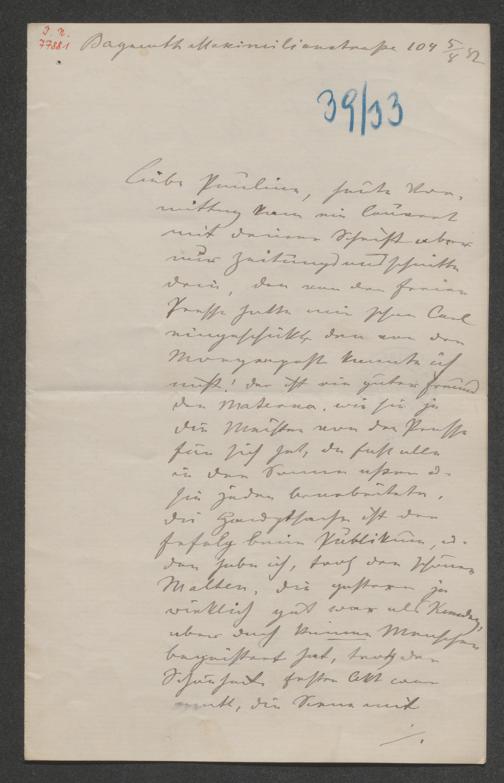 J. N.
77881
Bayreuth Maximilianstraße 104 5/8 82
39/33
Liebe Pauline, heute Vor-
mittag kam ein Couvert
mit deiner Schrift aber
nur Zeitungsausschnitte
drin, den von der freien
Presse hatte mir schon Carl
eingeschickt den von der
Morgenpost kannte ich
nicht! der ist ein guter Freund
der Materna, wie sie ja
die Meisten von der Presse
für sich hat, da fast alle
in der
sie jeden bearbeitete,
die Hauptsache ist der
Erfolg beim Publikum, u.
den habe ich, trotz der schönen
Malten, die gestern ja
wirklich gut war als Kundry,
aber doch keinen Menschen
begeistert hat, trotz der
Schönheit erster Akt war
matt, die Scene mit
./.